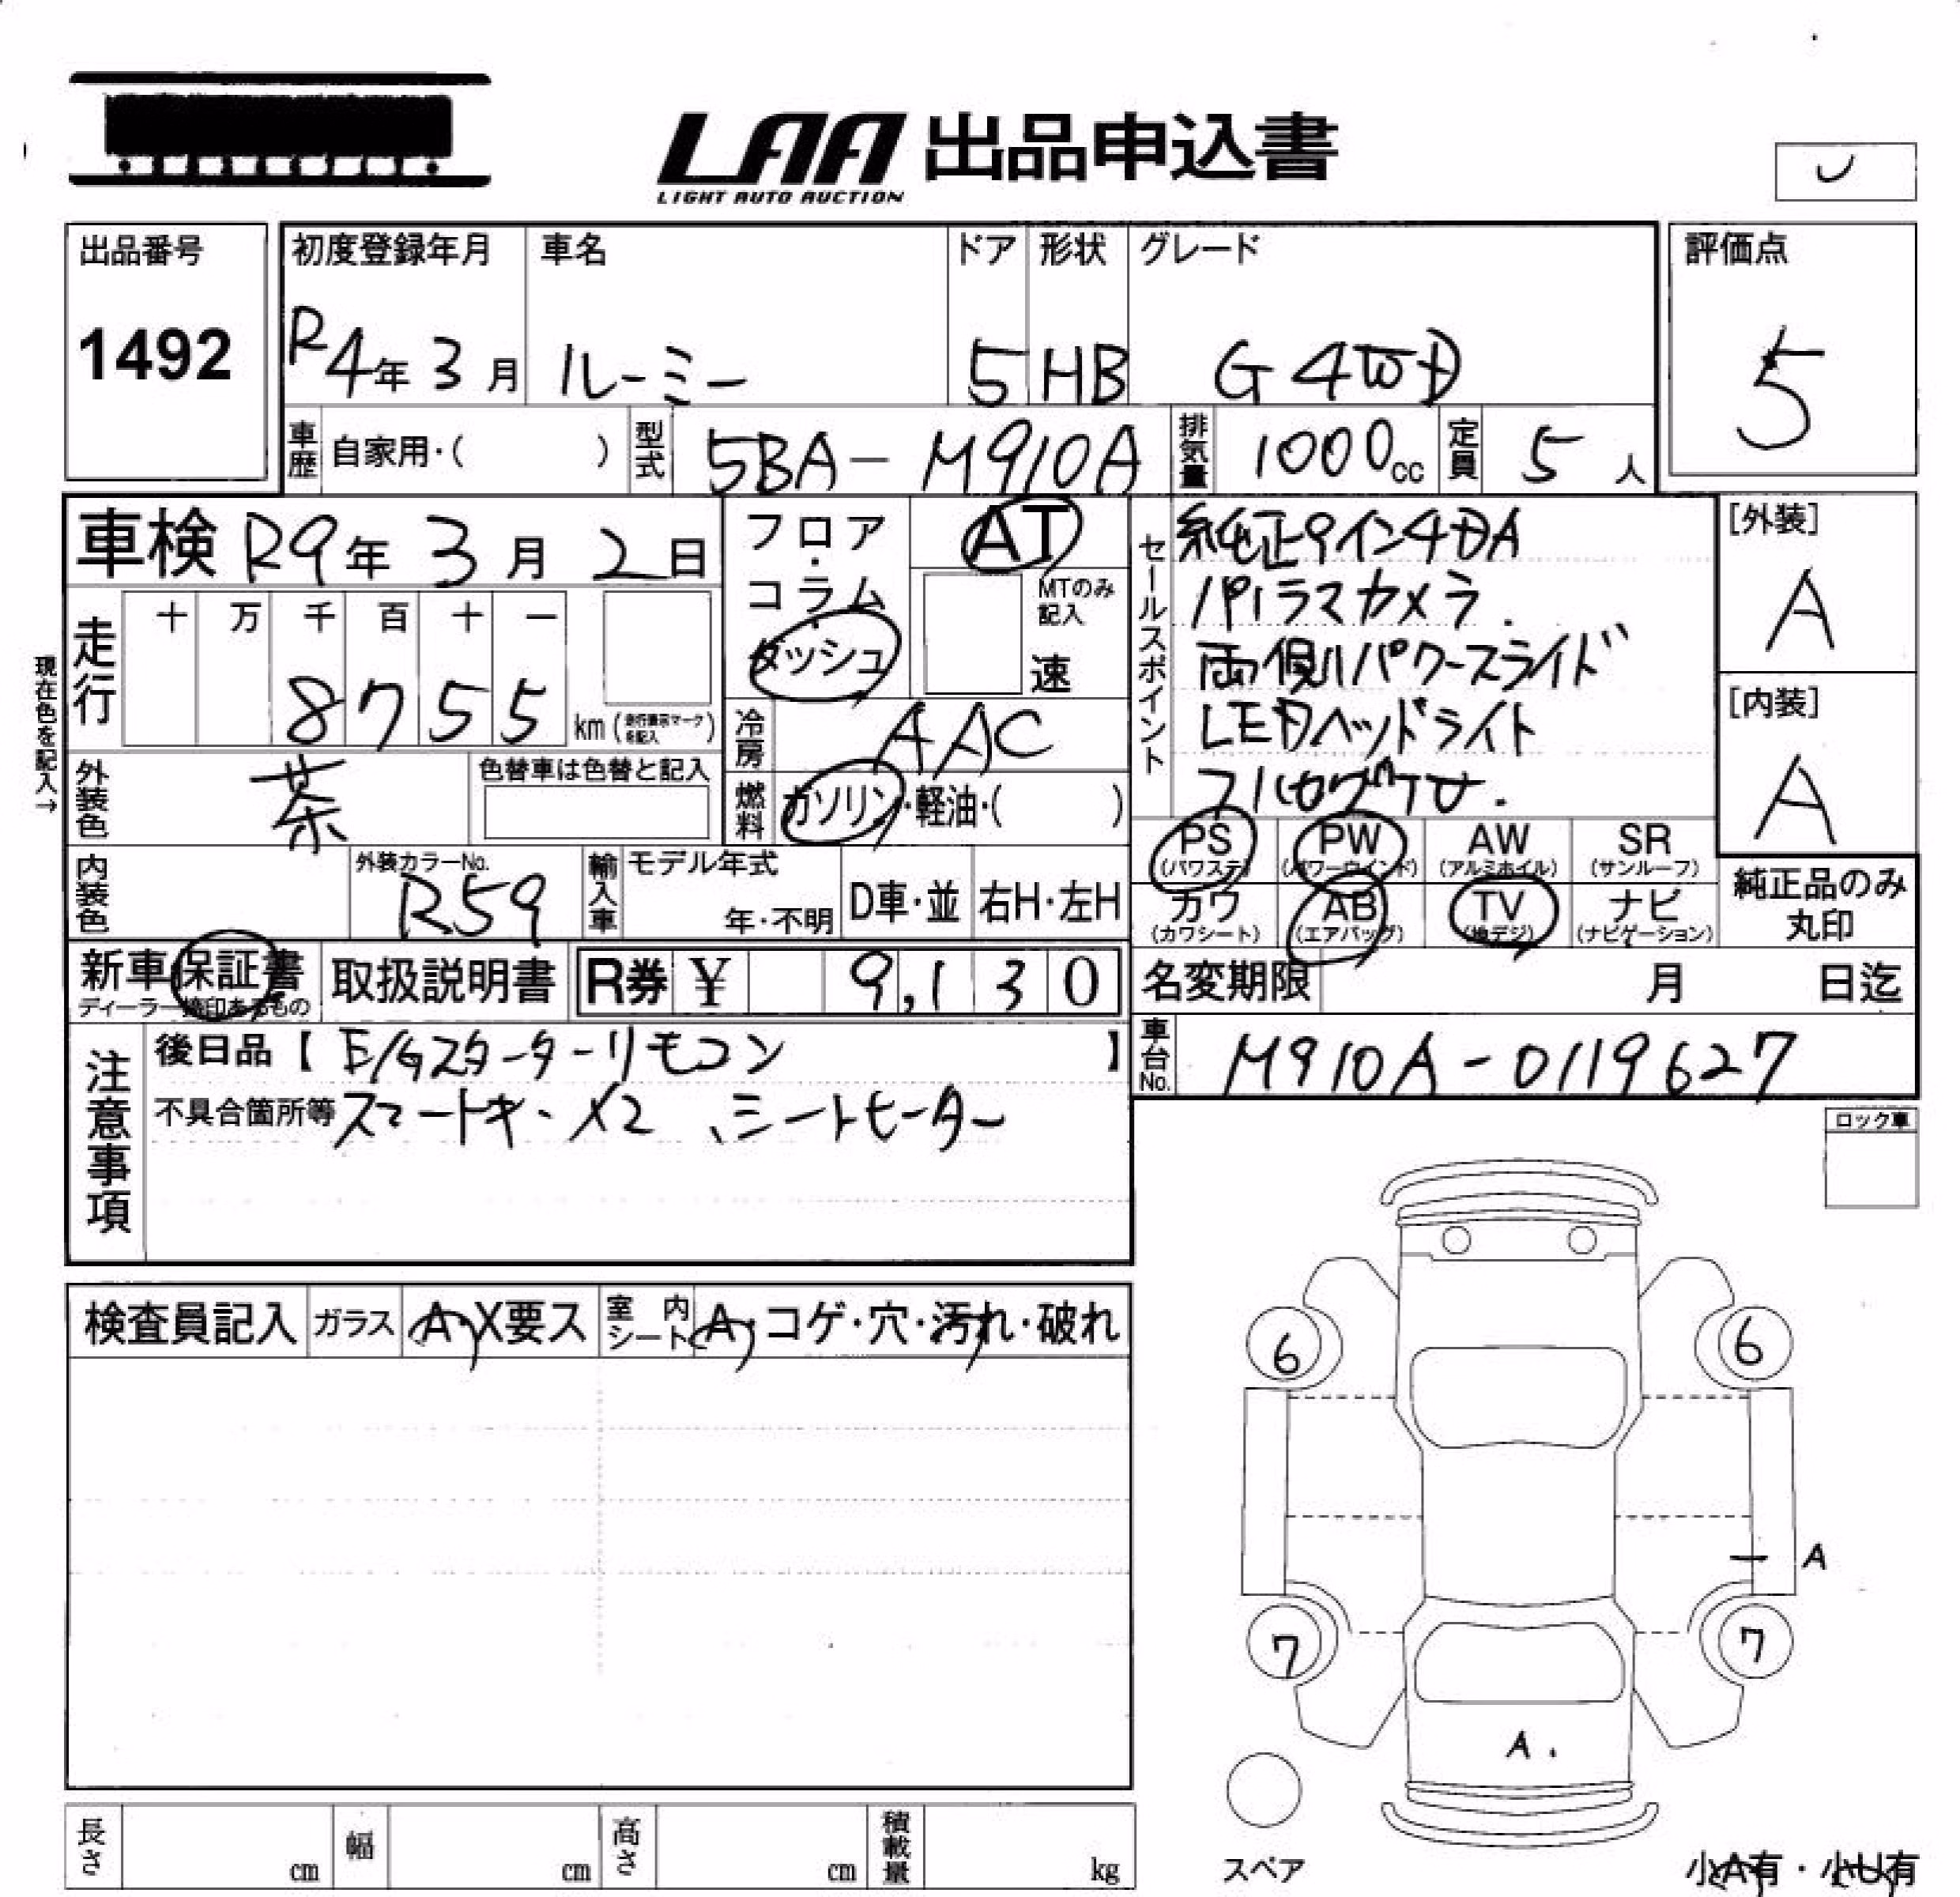 LAA 出品申込書
LIGHT AUTO AUCTION
出品番号
1492
初度登録年月
R4年3月
車名
ルーミー
ドア
5
形状
HB
グレード
G 4WD
評価点
5
車歴 自家用・( )
型式 5BA-M910A
排気量 1000cc
定員 5人
車検 R9年3月2日
現在色を記入→
走行
十 万 千 百 十 一
8755 km(走行表示マークを記入)
外装色 茶
色替車は色替と記入
内装色
外装カラーNo.
R59
フロア・コラム・ダッシュ
AT
MTのみ記入
速
冷房 AAC
燃料 ガソリン・軽油・( )
輸入車
モデル年式
年・不明
D車・並
右H・左H
セールスポイント
純正9イン4DA
パノラマカメラ.
両側パワースライド
LEDヘッドライト
[外装]
A
[内装]
A
PS (パワステ)
PW (パワーウインド)
AW (アルミホイル)
SR (サンルーフ)
カワ (カワシート)
AB (エアバッグ)
TV (地デジ)
ナビ (ナビゲーション)
純正品のみ
丸印
新車保証書
ディーラー捺印あるもの
取扱説明書
R券 ¥ 9,130
名変期限 月 日迄
車台No. M910A-0119627
注意事項
後日品【E/Gスターターリモコン 】
不具合箇所等 スマートキーX2、シートヒーター
ロック車
検査員記入
ガラス A・X要ス
室内シート A・コゲ・穴・汚れ・破れ
6
6
A
7
7
A.
スペア
小A有・小U有
長さ cm
幅 cm
高さ cm
積載量 kg